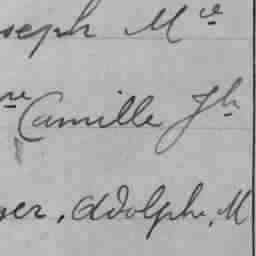 seph Mce
re Camille Jh
ger, Adolphe, M